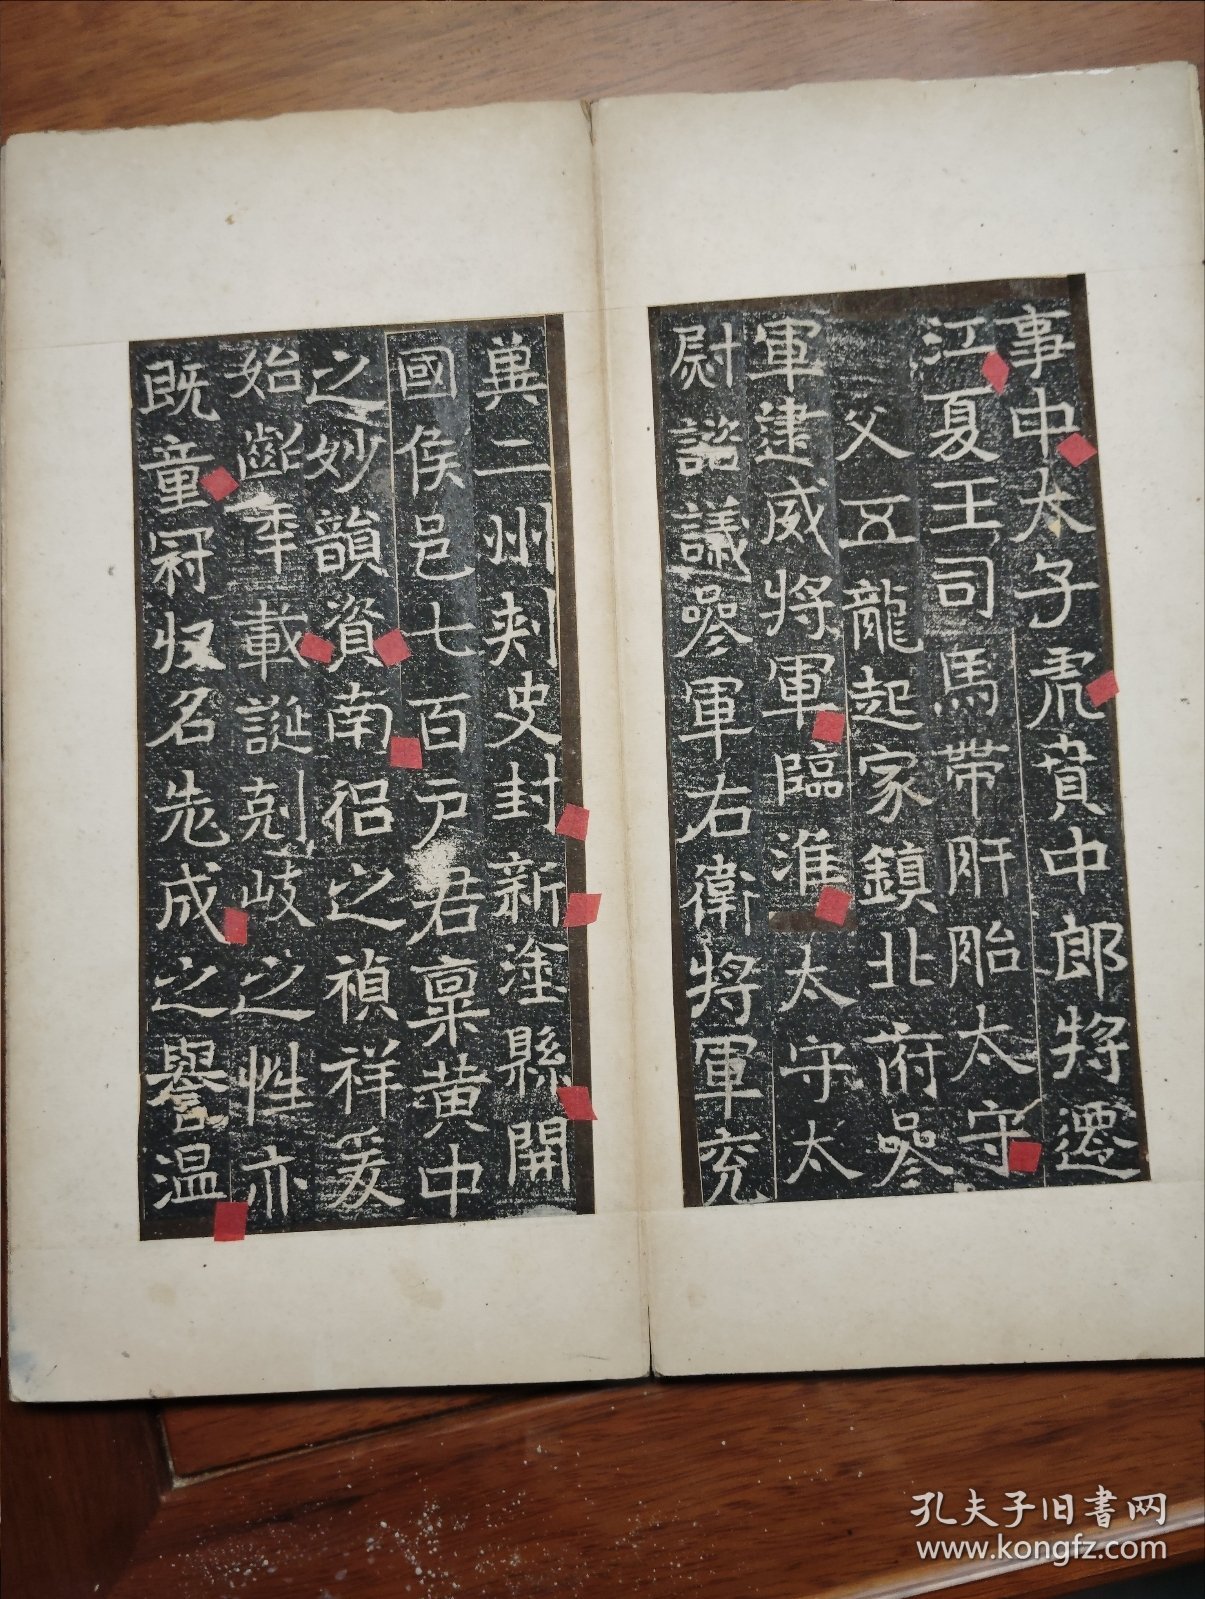 事中太子虎賁中郎將遷
江夏王司馬帶盱眙太守
父五龍起家鎮北府參
軍建威將軍臨淮太守太
尉諮議參軍右衛將軍兗
冀二州刺史封新塗縣開
國侯邑七百戶君稟黃中
之妙韻資南侶之禎祥爰
始齠年載誕克岐之性亦
既童冠夙名先成之譽溫
孔夫子旧书网
www.kongfz.com